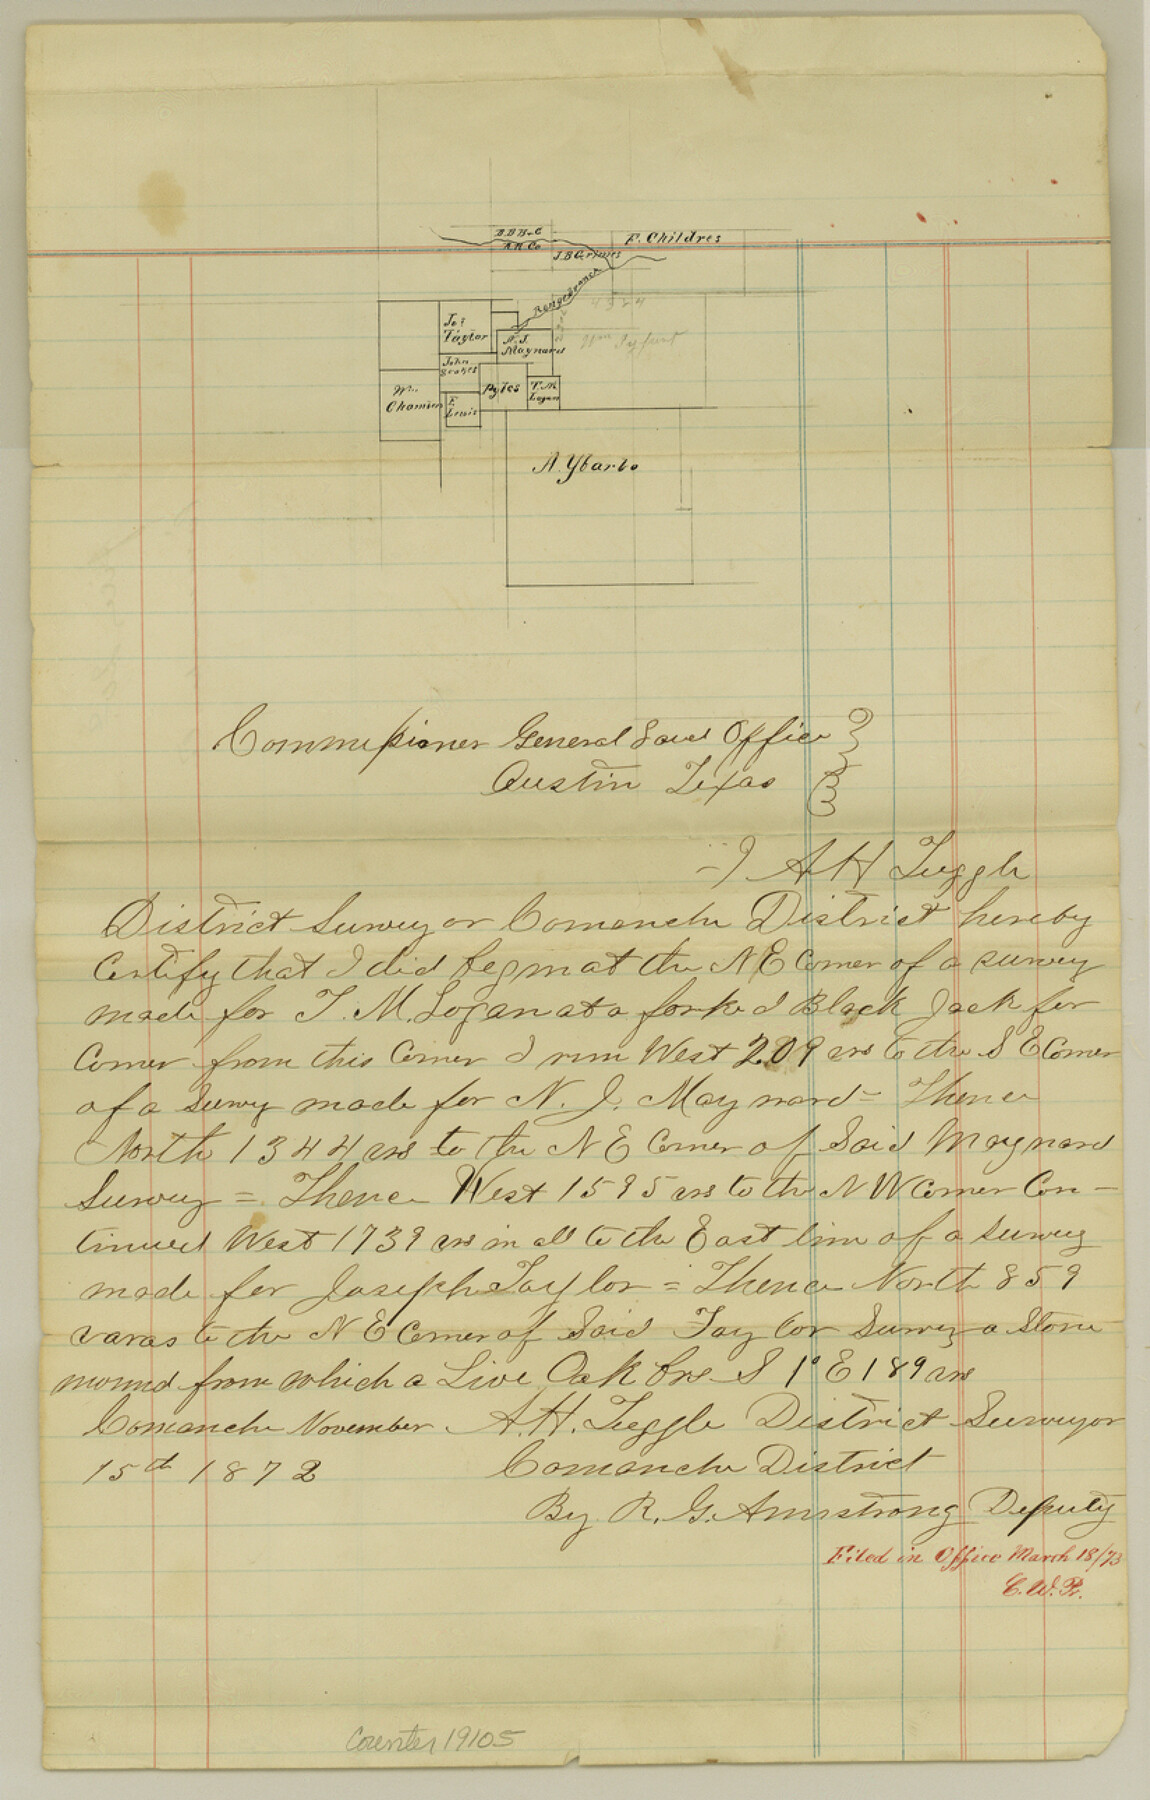 B.B.B.&C
R.R.Co
F. Childres
J.B. Grimes
4324
Jos
Taylor
N.J.
Maynard
Wm
John
Wm.
Chamien
F.
Lewis
Pyles
T.M.
Logan
A. Ybarbo
Commissioner General Land Office
Austin Texas
I A H Tuggle
District Surveyor Comanche District hereby
Certify that I did begin at the N E Corner of a survey
made for T. M. Logan at a forked Black Jack for
Corner from this Corner I run West 209 vrs to the S E Corner
of a Survey made for N. J. Maynard = Thence
North 1344 vrs to the N E Corner of Said Maynard
Survey = Thence West 1595 vrs to the N W Corner Con-
tinued West 1739 vrs in all to the East line of a survey
made for Joseph Taylor = Thence North 859
varas to the N E Corner of Said Taylor Survey a Stone
mound from which a Live Oak brs S 1° E 189 vrs
Comanche November A. H. Tuggle District Surveyor
15th 1872 Comanche District
By R. G. Armstrong Deputy
Filed in Office March 18/73
C.W.P.
Counter 19105